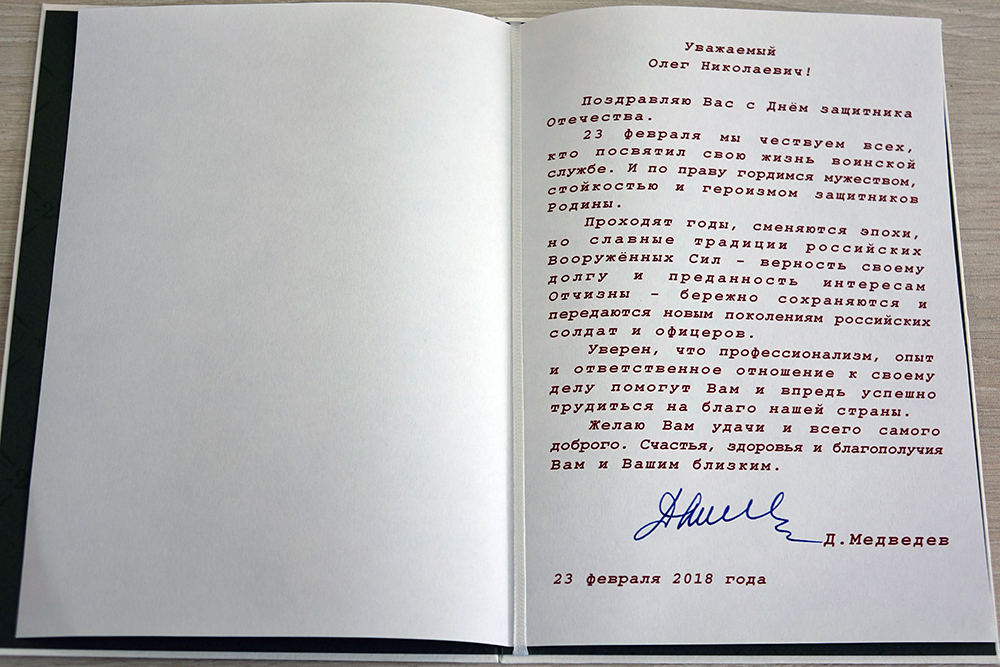 Уважаемый
Олег Николаевич!
Поздравляю Вас с Днём защитника
Отечества.
23 февраля мы чествуем всех,
кто посвятил свою жизнь воинской
службе. И по праву гордимся мужеством,
стойкостью и героизмом защитников
Родины.
Проходят годы, сменяются эпохи,
но славные традиции российских
Вооружённых Сил – верность своему
долгу и преданность интересам
Отчизны – бережно сохраняются и
передаются новым поколениям российских
солдат и офицеров.
Уверен, что профессионализм, опыт
и ответственное отношение к своему
делу помогут Вам и впредь успешно
трудиться на благо нашей страны.
Желаю Вам удачи и всего самого
доброго. Счастья, здоровья и благополучия
Вам и Вашим близким.
Д.Медведев
23 февраля 2018 года